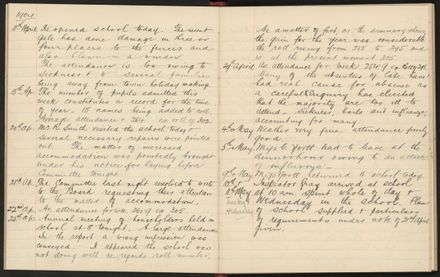 1904
11th April Reopened school today. The recent
gale has done damage in three or
four places to the fences and
also blown in a window.
The attendance is low owing to
sickness & to several families
being away from town holiday making.
15th Ap. The number of pupils admitted this
week constitutes a record for the time
of year 18 names being added to roll
Average attendance = 264 ex roll of 303.
20th Ap. Mr. W. Smith visited the school today &
several necessary repairs were pointed
out. The matter of increased
accommodation was pointedly brought
under his notice for laying before
Committee tonight.
21st Ap. The Committee last night resolved to write
to the Board requesting their attention
to the matter of accommodation.
22nd Ap. An attendance for week 264 ex 305.
25th Ap. Annual meeting of householders held in
school at 8 tonight. A large attendance
In the report a wrong impression was
conveyed. It appeared the school was
not doing well as regards roll number.
As a matter of fact as the summary shows
the gain for the year was considerable
the roll rising from to 295 and
is at the present moment 305.
29 April An attendance for week 254 ex
Many of the absentees of late have
had real cause for absence as
a careful enquiry has elicited
that the majority are too ill to
attend, sickness, boils and influenza
accounting for many.
4th May Weather very fine - attendance fairly
good.
5th May Miss G. Jyott had to leave at the
dinner hour owing to an attack
of influenza.
9th May Miss Jyott returned to school today.
Inspector Gray arrived at school
at 10 am & spent whole of day &
Tuesday &
Wednesday
Wednesday in the school. Plan
of school supplied & particulars
of requirements under note of 21st April
given.